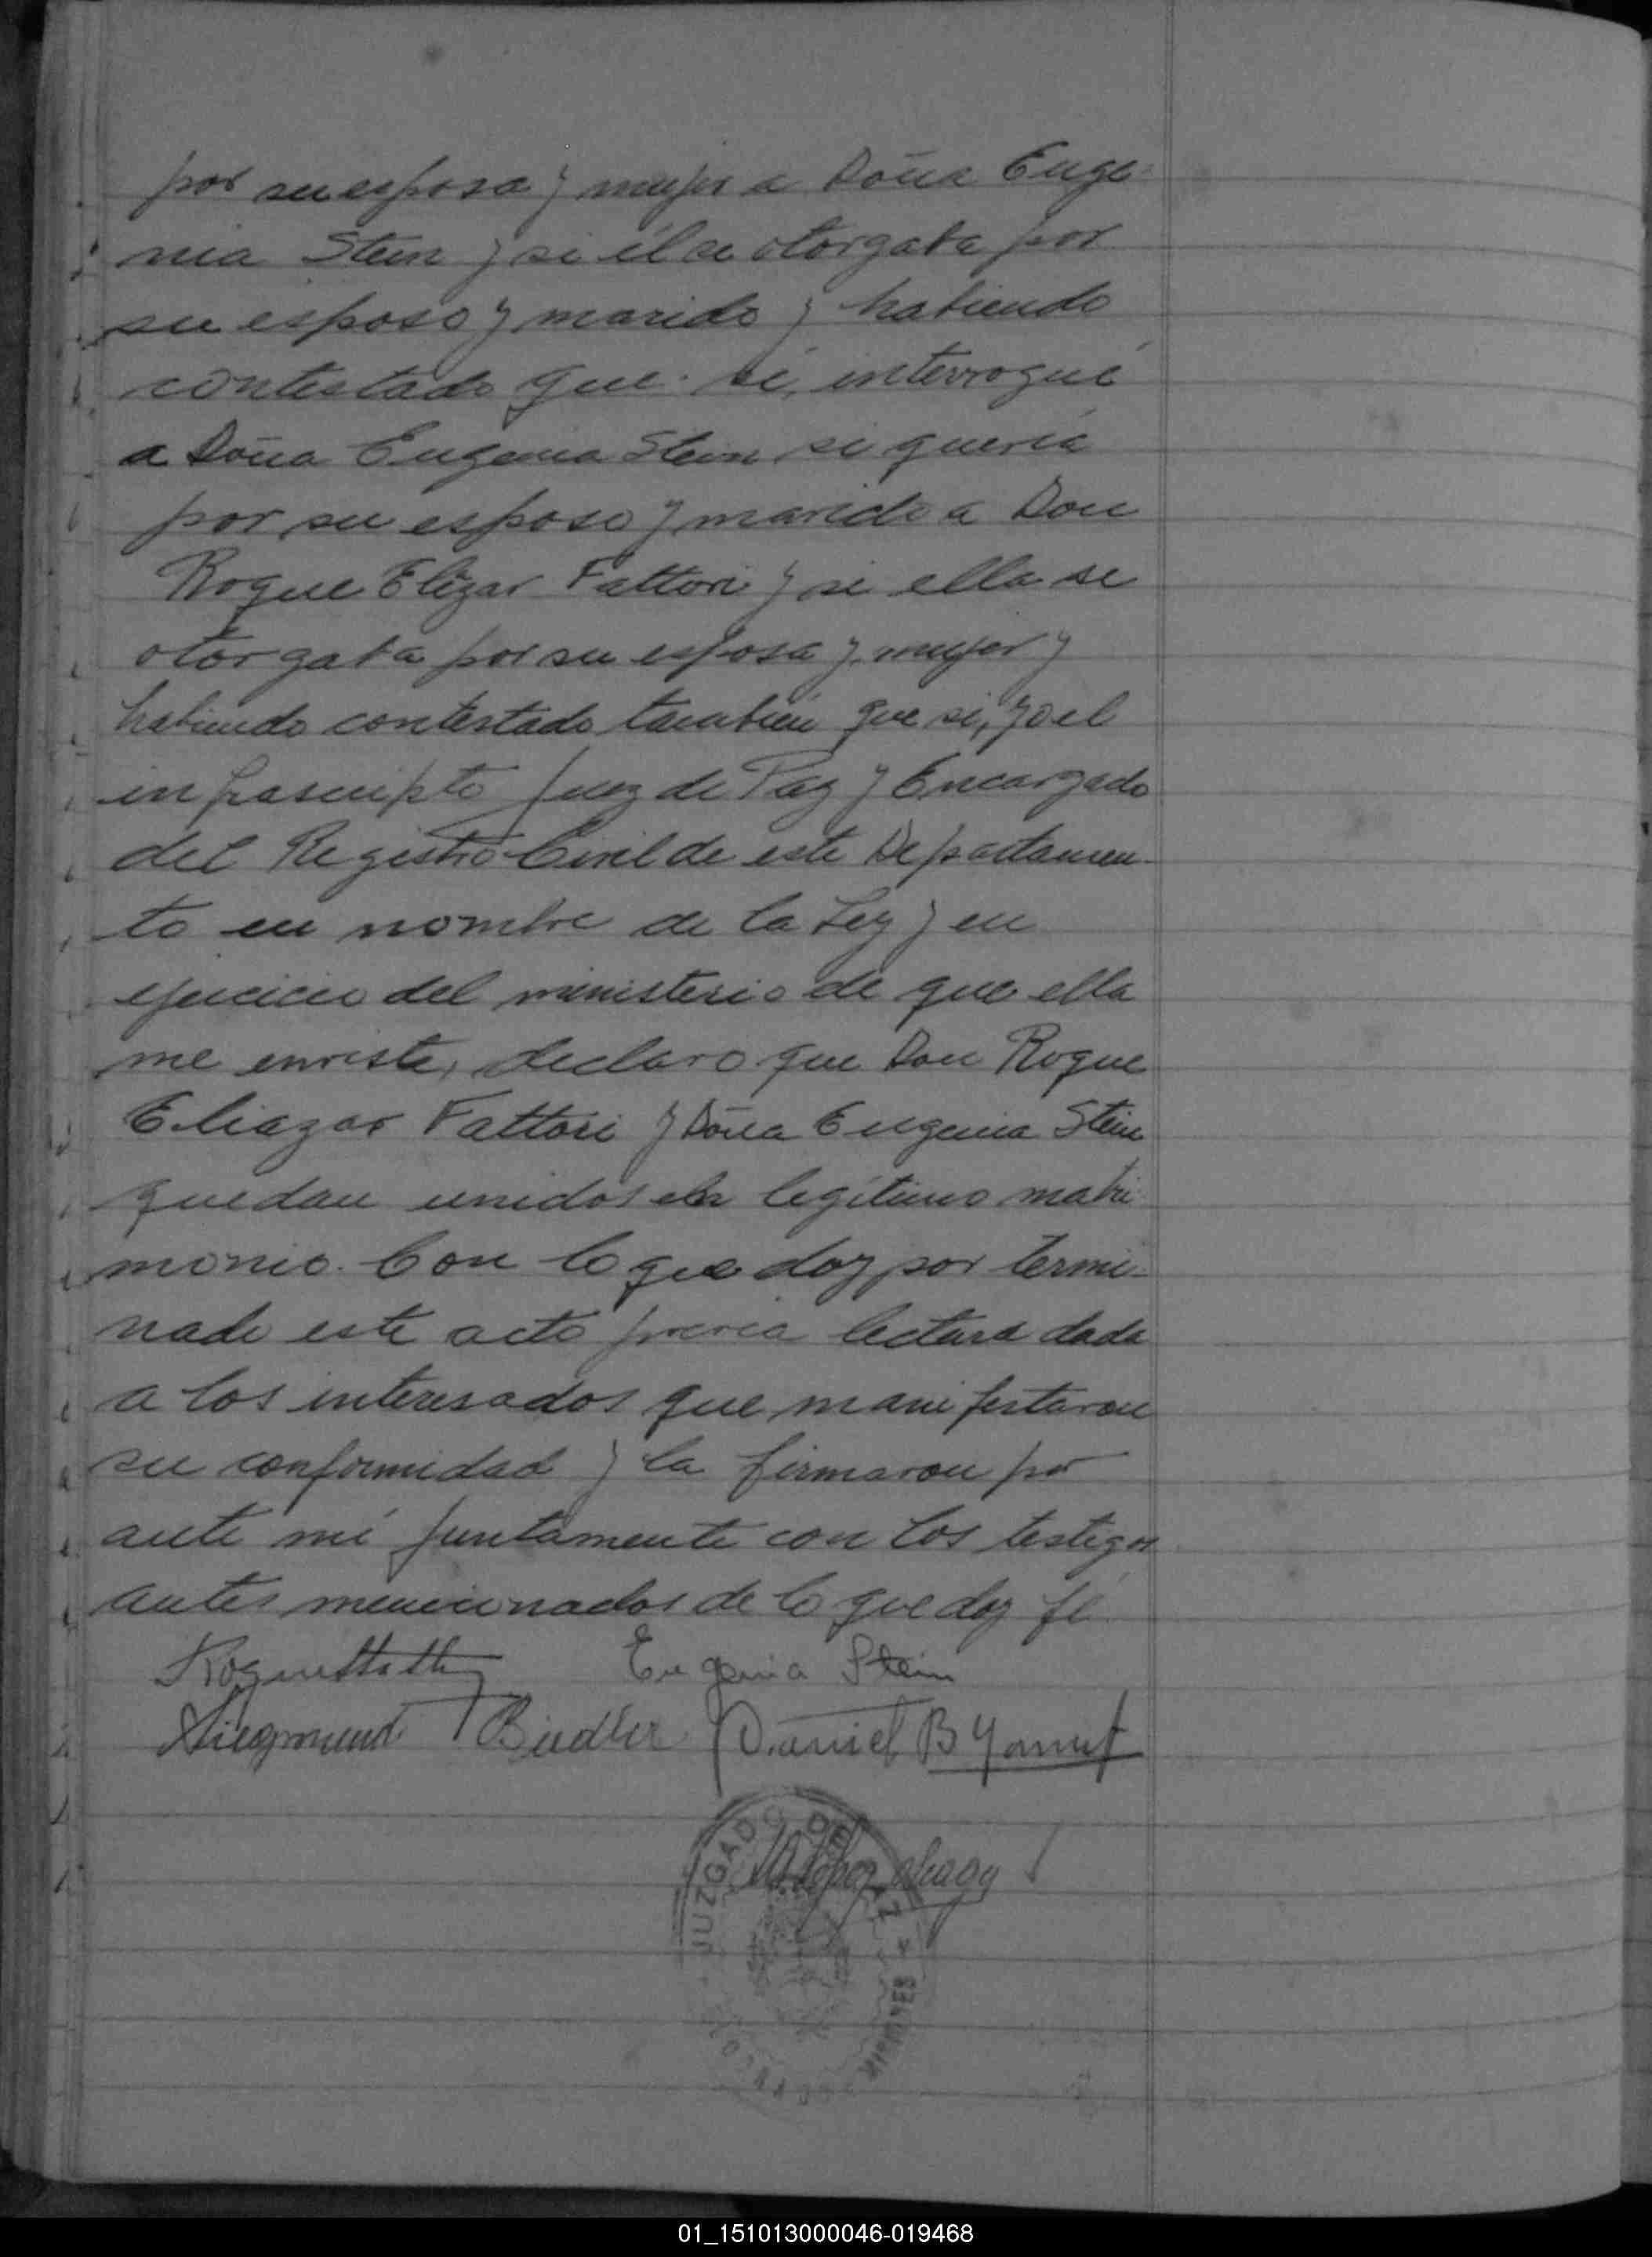 por su esposa y mujer a Doña Euge-
nia Stein y si él se otorgaba por
su esposo y marido y habiendo
contestado que sí, interrogué
a Doña Eugenia Stein si quería
por su esposo y marido a Don
Roque Elizar Fattori y si ella se
otorgaba por su esposa y mujer y
habiendo contestado también que si, yo el
infrascripto Juez de Paz y Encargado
del Registro Civil de este Departamen-
to en nombre de la Ley y en
ejercicio del ministerio de que ella
me enviste, declaro que Don Roque
Eliazar Fattori y Doña Eugenia Stein
quedan unidos en legítimo matri-
monio. Con lo que doy por termi-
nado este acto previa lectura dada
a los interesados que manifestaron
su conformidad y la firmaron por
ante mí juntamente con los testigos
antes mencionados de lo que doy fé
Eugenia Stein
Siegmund Daniel B
JUZGADO DE
01_151013000046-019468